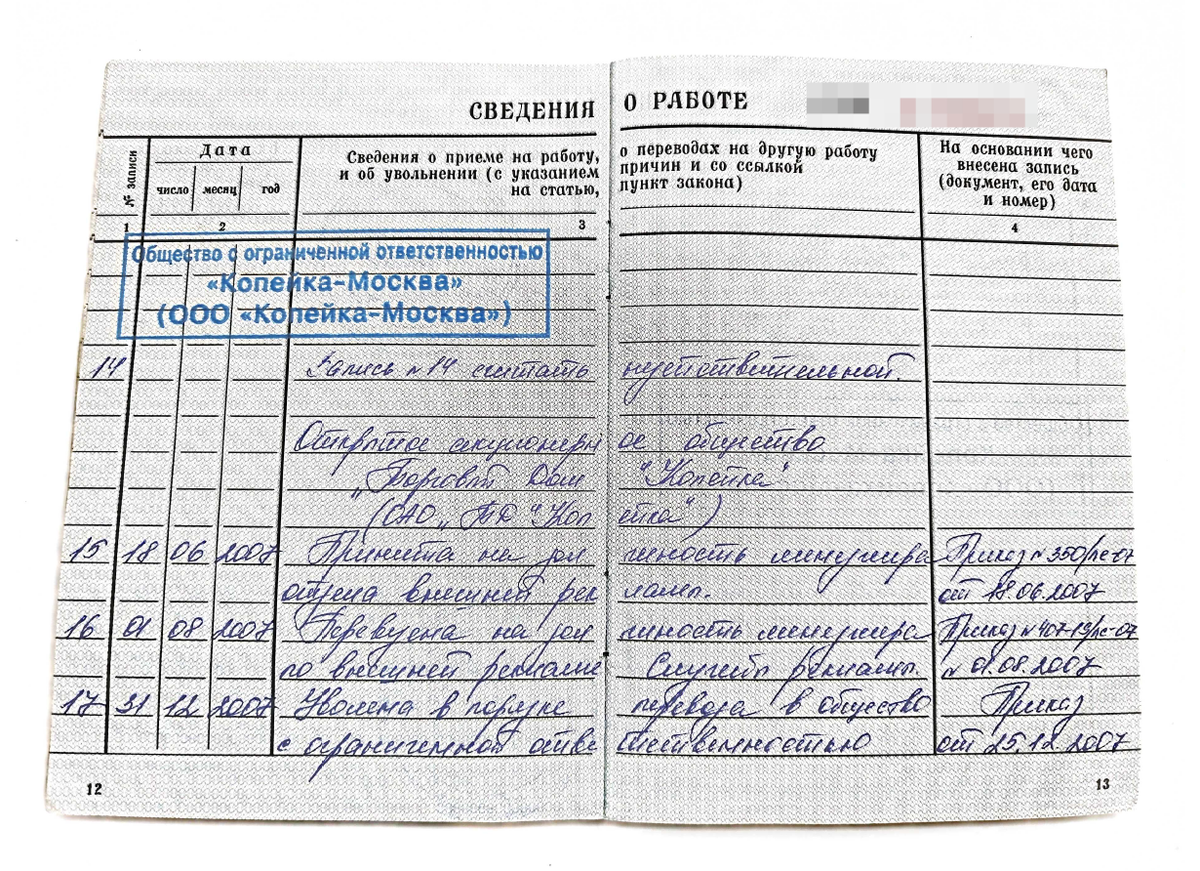 СВЕДЕНИЯ О РАБОТЕ
№ записи
Дата
число месяц год
Сведения о приеме на работу, о переводах на другую работу
и об увольнении (с указанием причин и со ссылкой
на статью, пункт закона)
На основании чего
внесена запись
(документ, его дата
и номер)
1 2 3 4
Общество с ограниченной ответственностью
«Копейка-Москва»
(ООО «Копейка-Москва»)
14 Запись №14 считать недействительной.
Открытое акционерное общество
„Торговый Дом "Копейка"
(ОАО „ТД "Копейка")
15 18 06 2007 Принята на должность менеджера Приказ №350/лс-07
отдела внешней рекламы. от 18.06.2007
16 01 08 2007 Переведена на должность менеджера Приказ №407-19/лс-07
по внешней рекламе Службы рекламы. № 01.08.2007
17 31 12 2007 Уволена в порядке перевода в общество Приказ
с ограниченной ответственностью от 25.12.2007
12 13